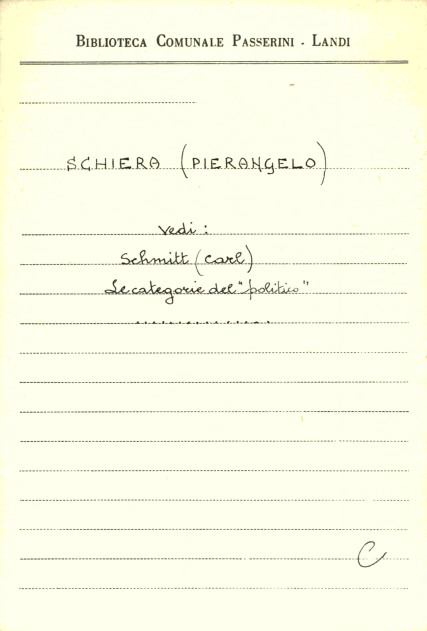 BIBLIOTECA COMUNALE PASSERINI - LANDI
SCHIERA (PIERANGELO)
Vedi :
Schmitt (Carl)
Le categorie del "politico"
..............
C